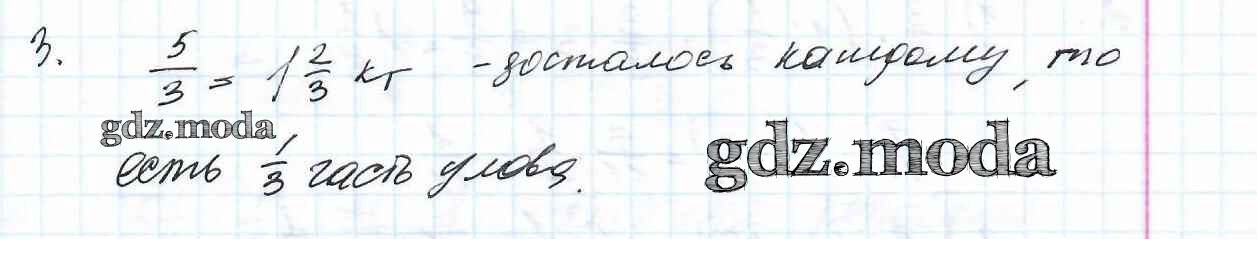 3. 5/3 = 1 2/3 кг - досталось каждому, то
gdz.moda
есть 1/3 часть улова.
gdz.moda